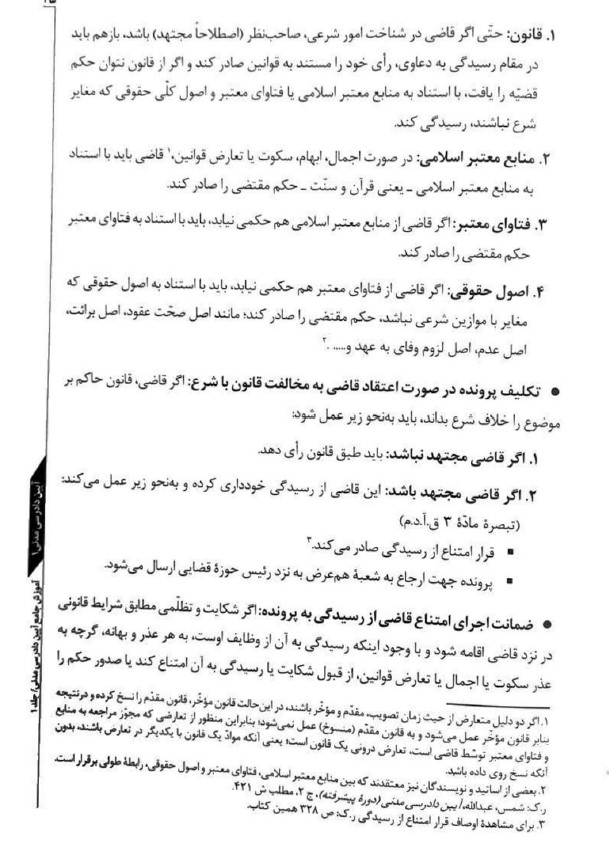 ۱. قانون: حتّی اگر قاضی در شناخت امور شرعی، صاحب‌نظر (اصطلاحاً مجتهد) باشد، بازهم باید
در مقام رسیدگی به دعاوی، رأی خود را مستند به قوانین صادر کند و اگر از قانون نتوان حکم
قضیّه را یافت، با استناد به منابع معتبر اسلامی یا فتاوای معتبر و اصول کلّی حقوقی که مغایر
شرع نباشند، رسیدگی کند.
۲. منابع معتبر اسلامی: در صورت اجمال، ابهام، سکوت یا تعارض قوانین،۱ قاضی باید با استناد
به منابع معتبر اسلامی ـ یعنی قرآن و سنّت ـ حکم مقتضی را صادر کند.
۳. فتاوای معتبر: اگر قاضی از منابع معتبر اسلامی هم حکمی نیابد، باید با استناد به فتاوای معتبر
حکم مقتضی را صادر کند.
۴. اصول حقوقی: اگر قاضی از فتاوای معتبر هم حکمی نیابد، باید با استناد به اصول حقوقی که
مغایر با موازین شرعی نباشد، حکم مقتضی را صادر کند؛ مانند اصل صحّت عقود، اصل برائت،
اصل عدم، اصل لزوم وفای به عهد و..... .۲
● تکلیف پرونده در صورت اعتقاد قاضی به مخالفت قانون با شرع: اگر قاضی، قانون حاکم بر
موضوع را خلاف شرع بداند، باید به‌نحو زیر عمل شود:
۱. اگر قاضی مجتهد نباشد: باید طبق قانون رأی دهد.
۲. اگر قاضی مجتهد باشد: این قاضی از رسیدگی خودداری کرده و به‌نحو زیر عمل می‌کند:
(تبصرهٔ مادّهٔ ۳ ق.آ.د.م)
▪ قرار امتناع از رسیدگی صادر می‌کند.۳
▪ پرونده جهت ارجاع به شعبهٔ هم‌عرض به نزد رئیس حوزهٔ قضایی ارسال می‌شود.
● ضمانت اجرای امتناع قاضی از رسیدگی به پرونده: اگر شکایت و تظلّمی مطابق شرایط قانونی
در نزد قاضی اقامه شود و با وجود اینکه رسیدگی به آن از وظایف اوست، به هر عذر و بهانه، گرچه به
عذر سکوت یا اجمال یا تعارض قوانین، از قبول شکایت یا رسیدگی به آن امتناع کند یا صدور حکم را
۱. اگر دو دلیل متعارض از حیث زمان تصویب، مقدّم و مؤخّر باشند، در این حالت قانون مؤخّر، قانون مقدّم را نسخ کرده و درنتیجه
بنابر قانون مؤخّر عمل می‌شود و به قانون مقدّم (منسوخ) عمل نمی‌شود؛ بنابراین منظور از تعارضی که مجوّز مراجعه به منابع
و فتاوای معتبر توسّط قاضی است، تعارض درونی یک قانون است؛ یعنی آنکه موادّ یک قانون با یکدیگر در تعارض باشند، بدون
آنکه نسخ روی داده باشد.
۲. بعضی از اساتید و نویسندگان نیز معتقدند که بین منابع معتبر اسلامی، فتاوای معتبر و اصول حقوقی، رابطهٔ طولی برقرار است.
ر.ک: شمس، عبدالله، آیین دادرسی مدنی (دورهٔ پیشرفته)، ج ۲، مطلب ش ۴۲۱.
۳. برای مشاهدهٔ اوصاف قرار امتناع از رسیدگی ر.ک: ص ۳۲۸ همین کتاب.
آیین دادرسی مدنی ۱
آموزش جامع آیین دادرسی مدنی/ جلد ۱